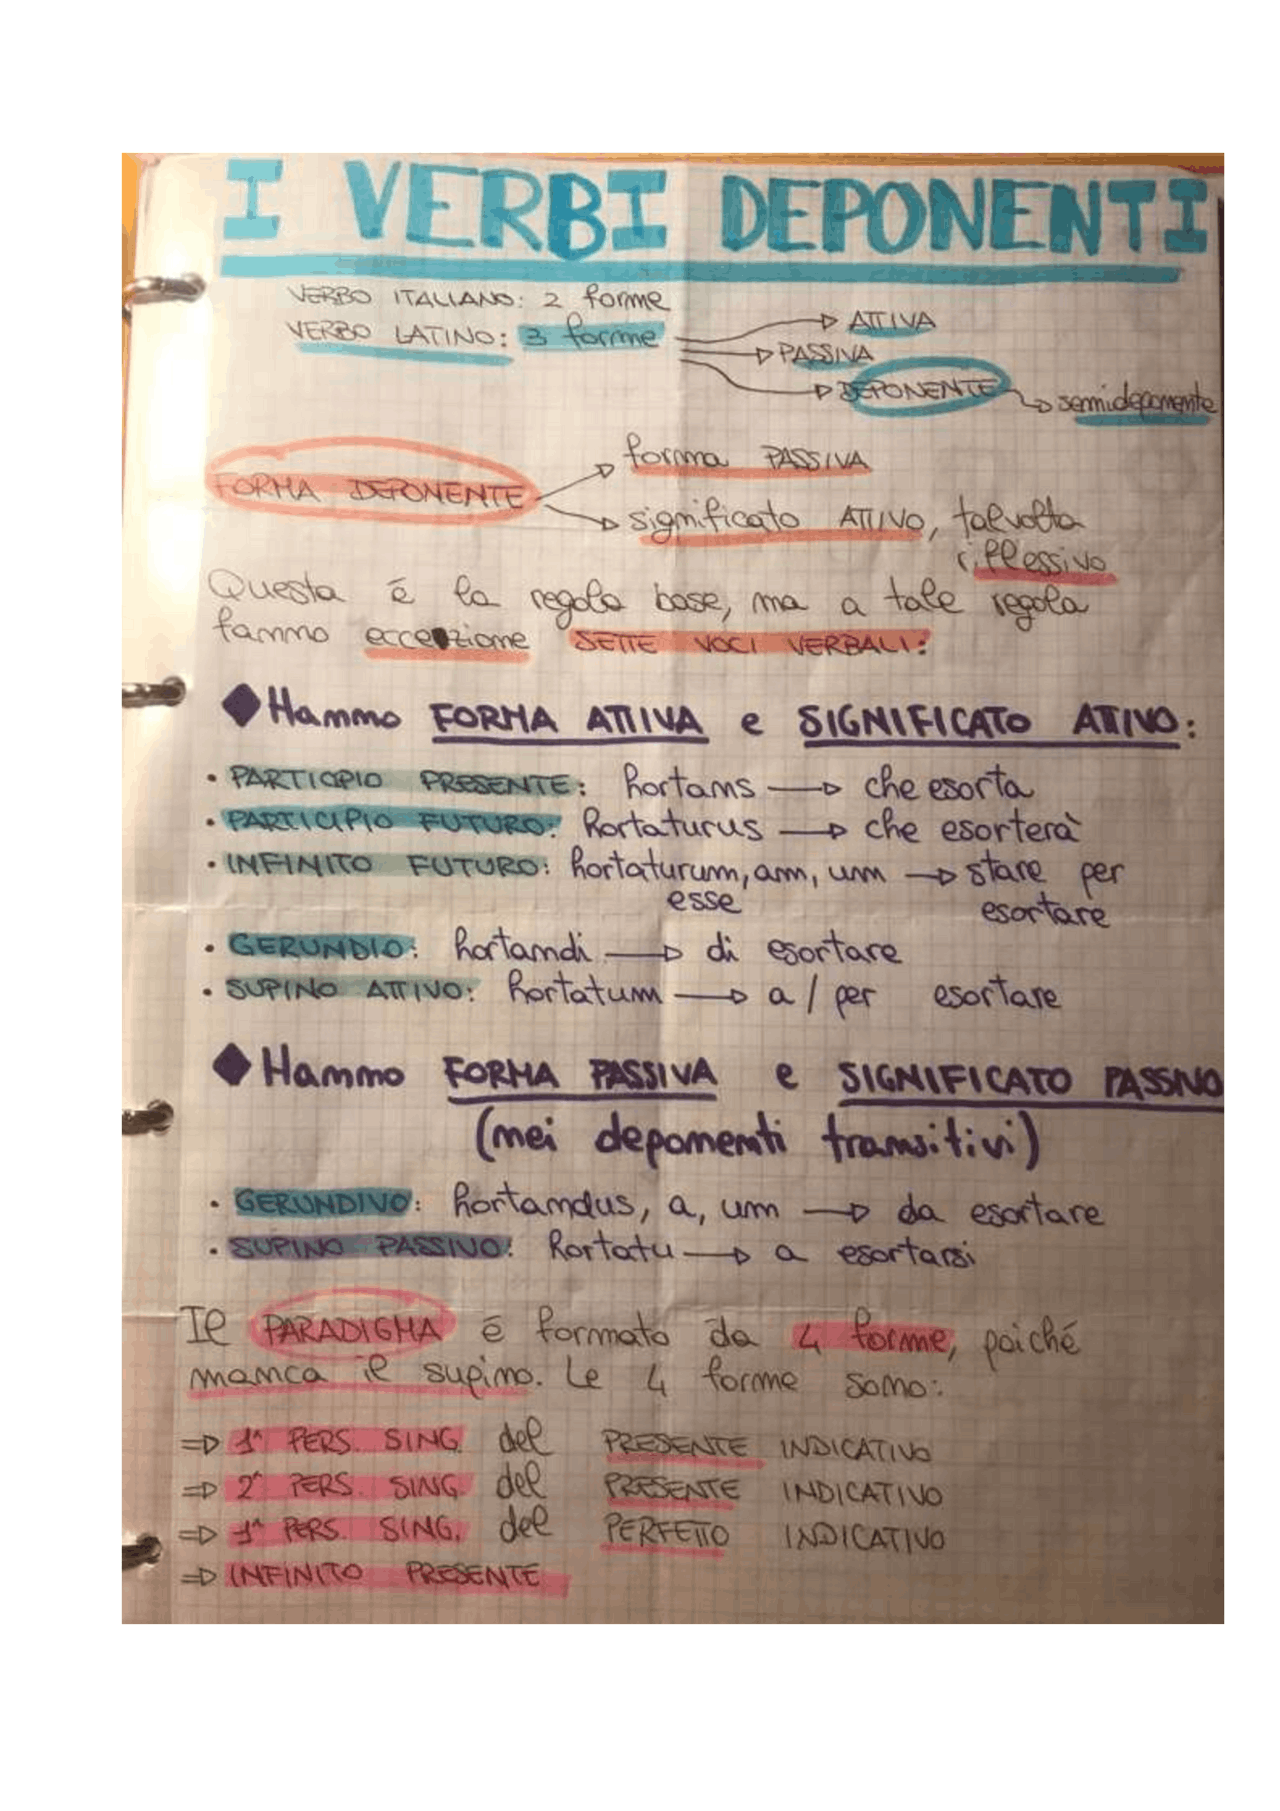 I VERBI DEPONENTI
VERBO ITALIANO: 2 forme
VERBO LATINO: 3 forme
ATTIVA
PASSIVA
DEPONENTE
semideponente
FORMA DEPONENTE
forma PASSIVA
significato ATTIVO, talvolta
riflessivo
Questa è la regola base, ma a tale regola
fanno eccezione SETTE VOCI VERBALI:
◆ Hanno FORMA ATTIVA e SIGNIFICATO ATTIVO:
• PARTICIPIO PRESENTE: hortans → che esorta
• PARTICIPIO FUTURO: hortaturus → che esorterà
• INFINITO FUTURO: hortaturum, am, um → stare per
esse esortare
• GERUNDIO: hortandi → di esortare
• SUPINO ATTIVO: hortatum → a / per esortare
◆ Hanno FORMA PASSIVA e SIGNIFICATO PASSIVO
(nei deponenti transitivi)
• GERUNDIVO: hortandus, a, um → da esortare
• SUPINO PASSIVO: hortatu → a esortarsi
Il PARADIGMA è formato da 4 forme, poiché
manca il supino. Le 4 forme sono:
⇒ 1ª PERS. SING. del PRESENTE INDICATIVO
⇒ 2ª PERS. SING. del PRESENTE INDICATIVO
⇒ 1ª PERS. SING. del PERFETTO INDICATIVO
⇒ INFINITO PRESENTE